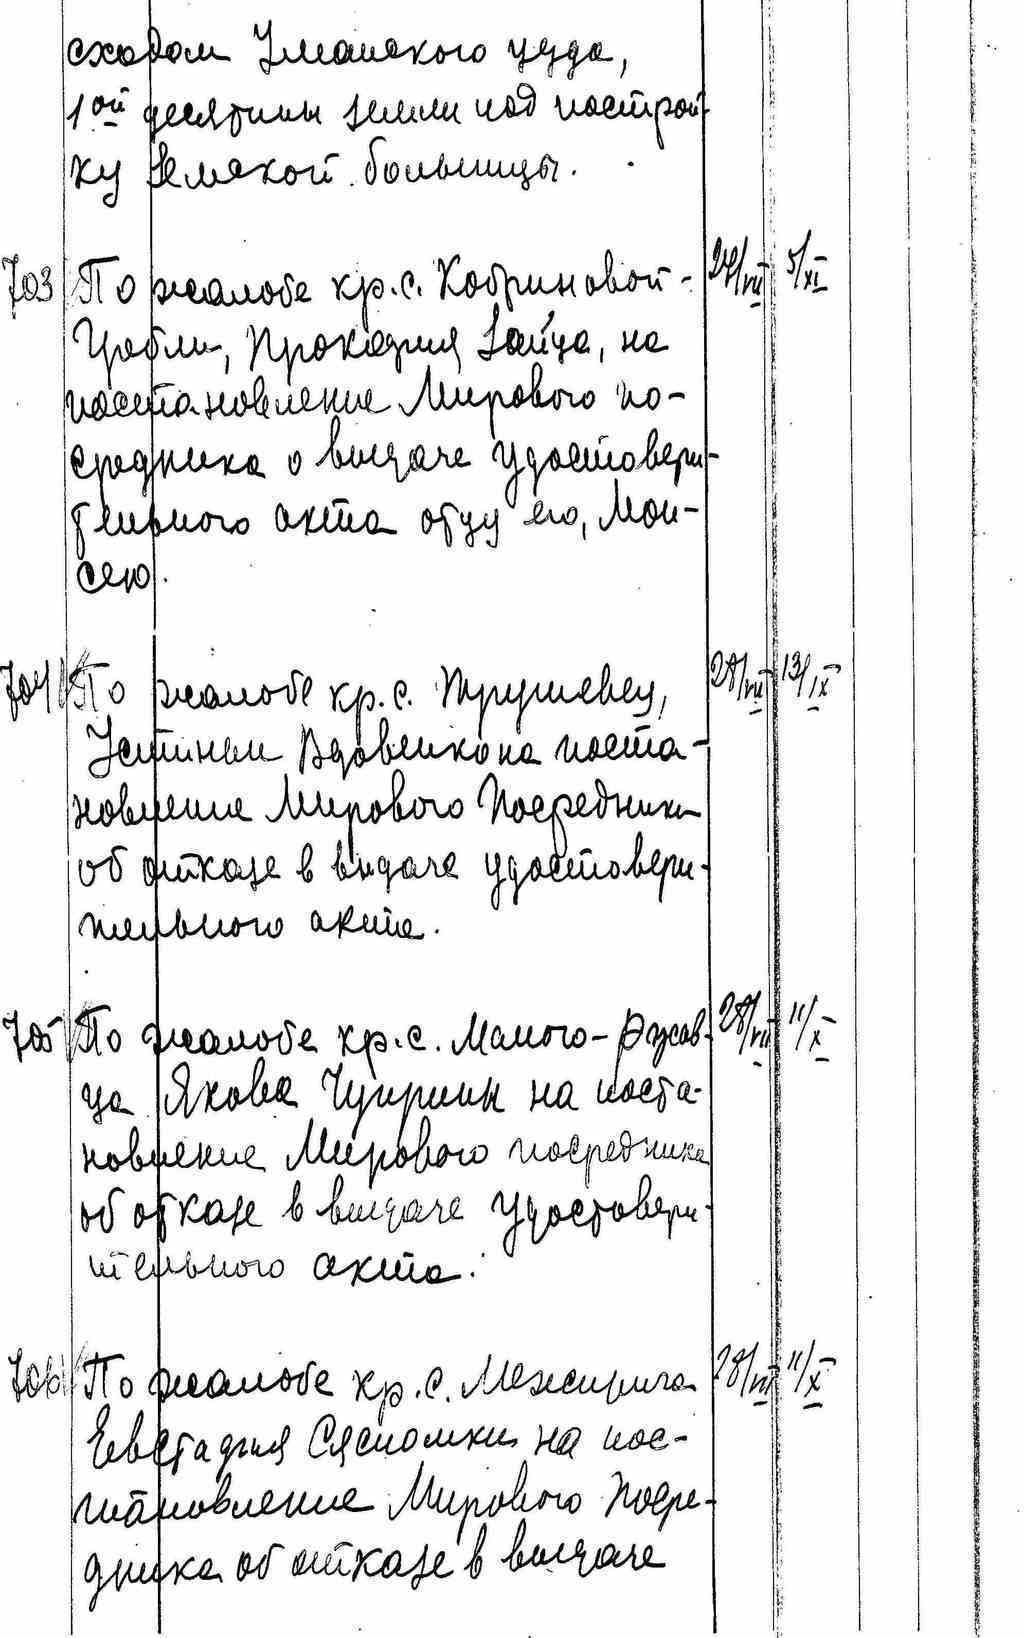 сходом Уманского уезда,
1ой десятины земли под построй-
ку Земской больницы.
703 По жалобе кр.с. Кобриновой- 27/VII 5/XI
Гребли, Прокофия Зайца, на
постановление Мирового по-
средника о выдаче удостовери-
тельного акта отцу его, Мои-
сею.
704 По жалобе кр.с. Трушевец, 28/VII 13/IX
Устиньи Вдовенко на поста-
новление Мирового Посредника
об отказе в выдаче удостовери-
тельного акта.
705 По жалобе кр.с. Малого-Ржав- 28/VII 11/X
ца Якова Чуприны на поста-
новление Мирового посредника
об отказе в выдаче удостовери-
тельного акта.
706 По жалобе кр.с. Межирича 28/VII 11/X
Евстафия на пос-
тановление Мирового Посре-
дника об отказе в выдаче